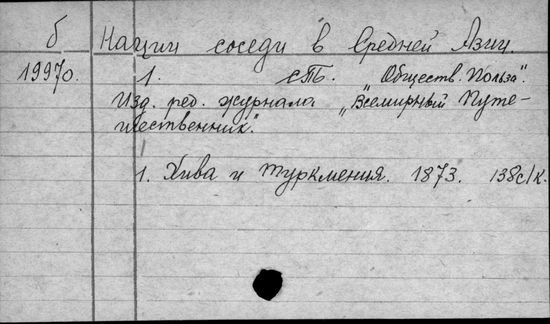 б Нации соседи в Средней Азии.
19970. 1. СПб. „Обществ. Польза".
Изд. ред. журнала „Всемирный Путе-
шественник".
1. Хива и Туркмения. 1873. 138с/к.